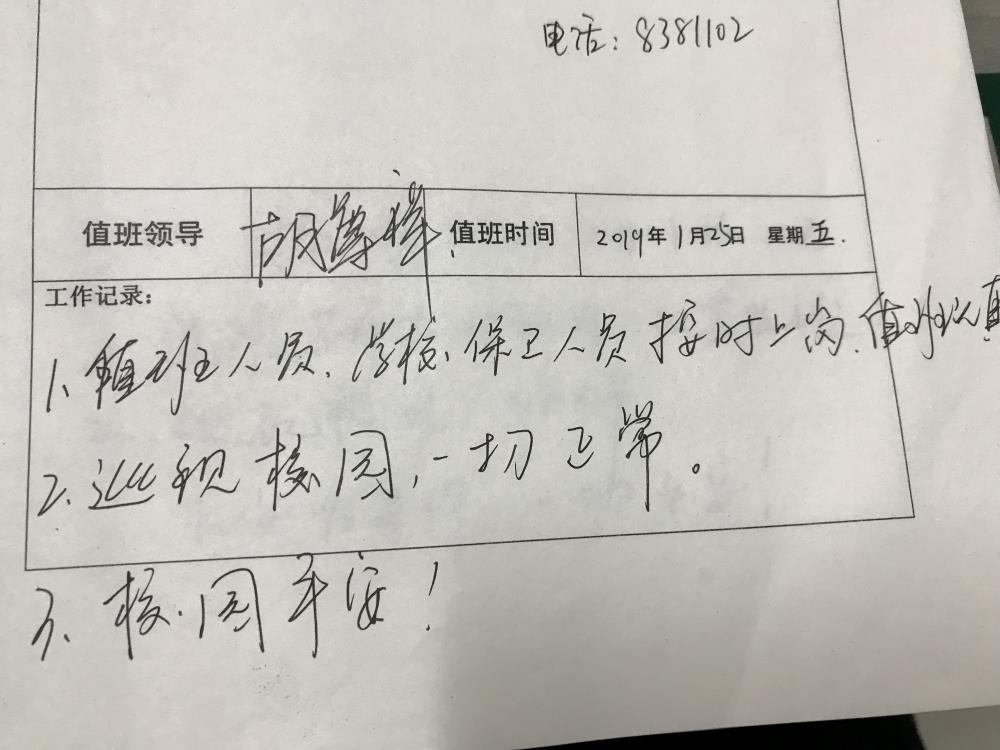 电话：8381102
值班领导 胡尊祥 值班时间 2019年1月25日 星期五.
工作记录：
1、值班人员、学校保卫人员按时上岗、值班认真
2、巡视校园，一切正常。
3、校园平安！